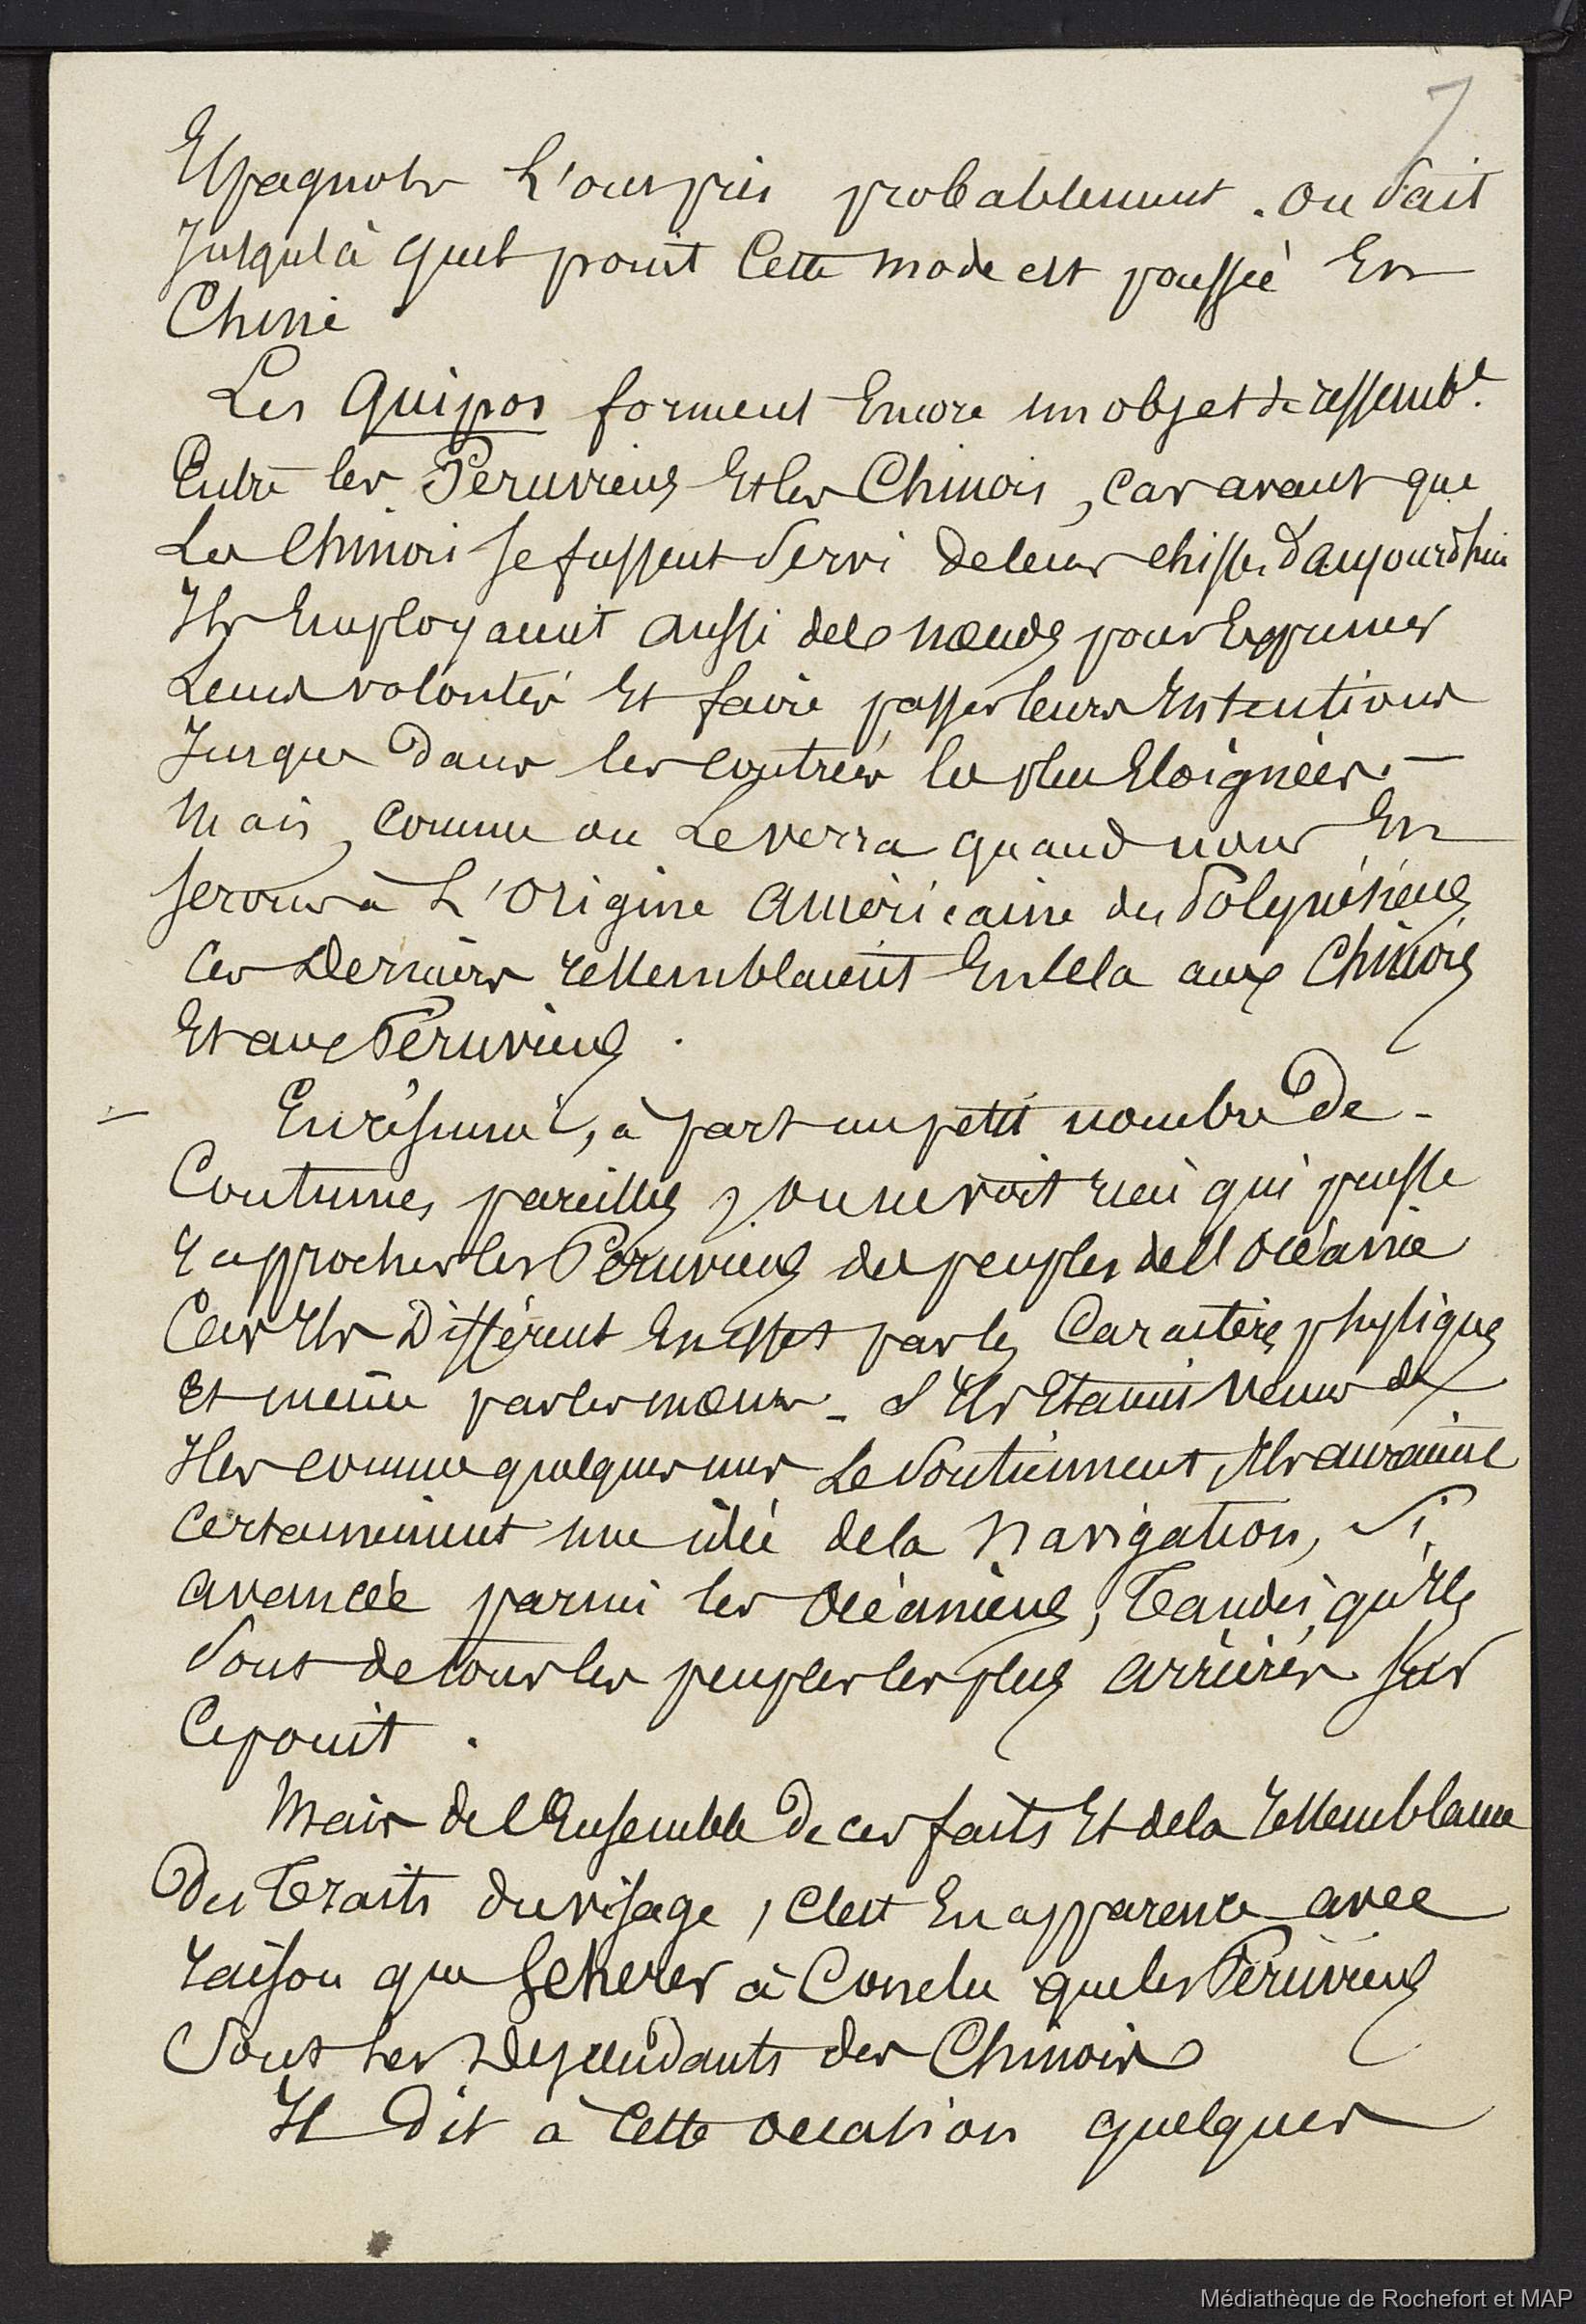 7
Espagnols l'ont pris probablement. on sait
jusqu'à quel point cette mode est poussée En
Chine
Les Quipos forment Encore un objet de ressembl.
Entre les Péruviens Et les Chinois, car avant que
Les Chinois se fussent servi de leur chiffre d'aujourd'hui
Ils Employaient aussi des nœuds pour Exprimer
Leurs volontés Et faire passer leurs Intentions
Jusque dans les contrées les plus Eloignées. —
Mais, comme on Le verra quand nous En
serons à L'origine américaine des Polynésiens
Ces Derniers ressemblaient En cela aux Chinois
Et aux Péruviens.
— En résumé, à part un petit nombre De -
Coutumes pareilles, on ne voit rien qui puisse
rapprocher les Péruviens des peuples de l'océanie
Car Ils Diffèrent En effet par les Caractères physiques
Et même par les mœurs - S'Ils Etaient venus des
Iles comme quelques uns Le soutiennent, Ils auraient
certainement une idée de la navigation, si
avancée parmi les océaniens, Tandis qu'Ils
sont de tous les peuples les plus arriérés sur
Ce point.
Mais de l'Ensemble De ces faits Et de la ressemblance
Des Traits du visage, C'est En apparence avec
raison que Scherer à Conclu que les Péruviens
Sont Les Descendants des Chinois
Il Dit à cette occasion quelques
Médiathèque de Rochefort et MAP